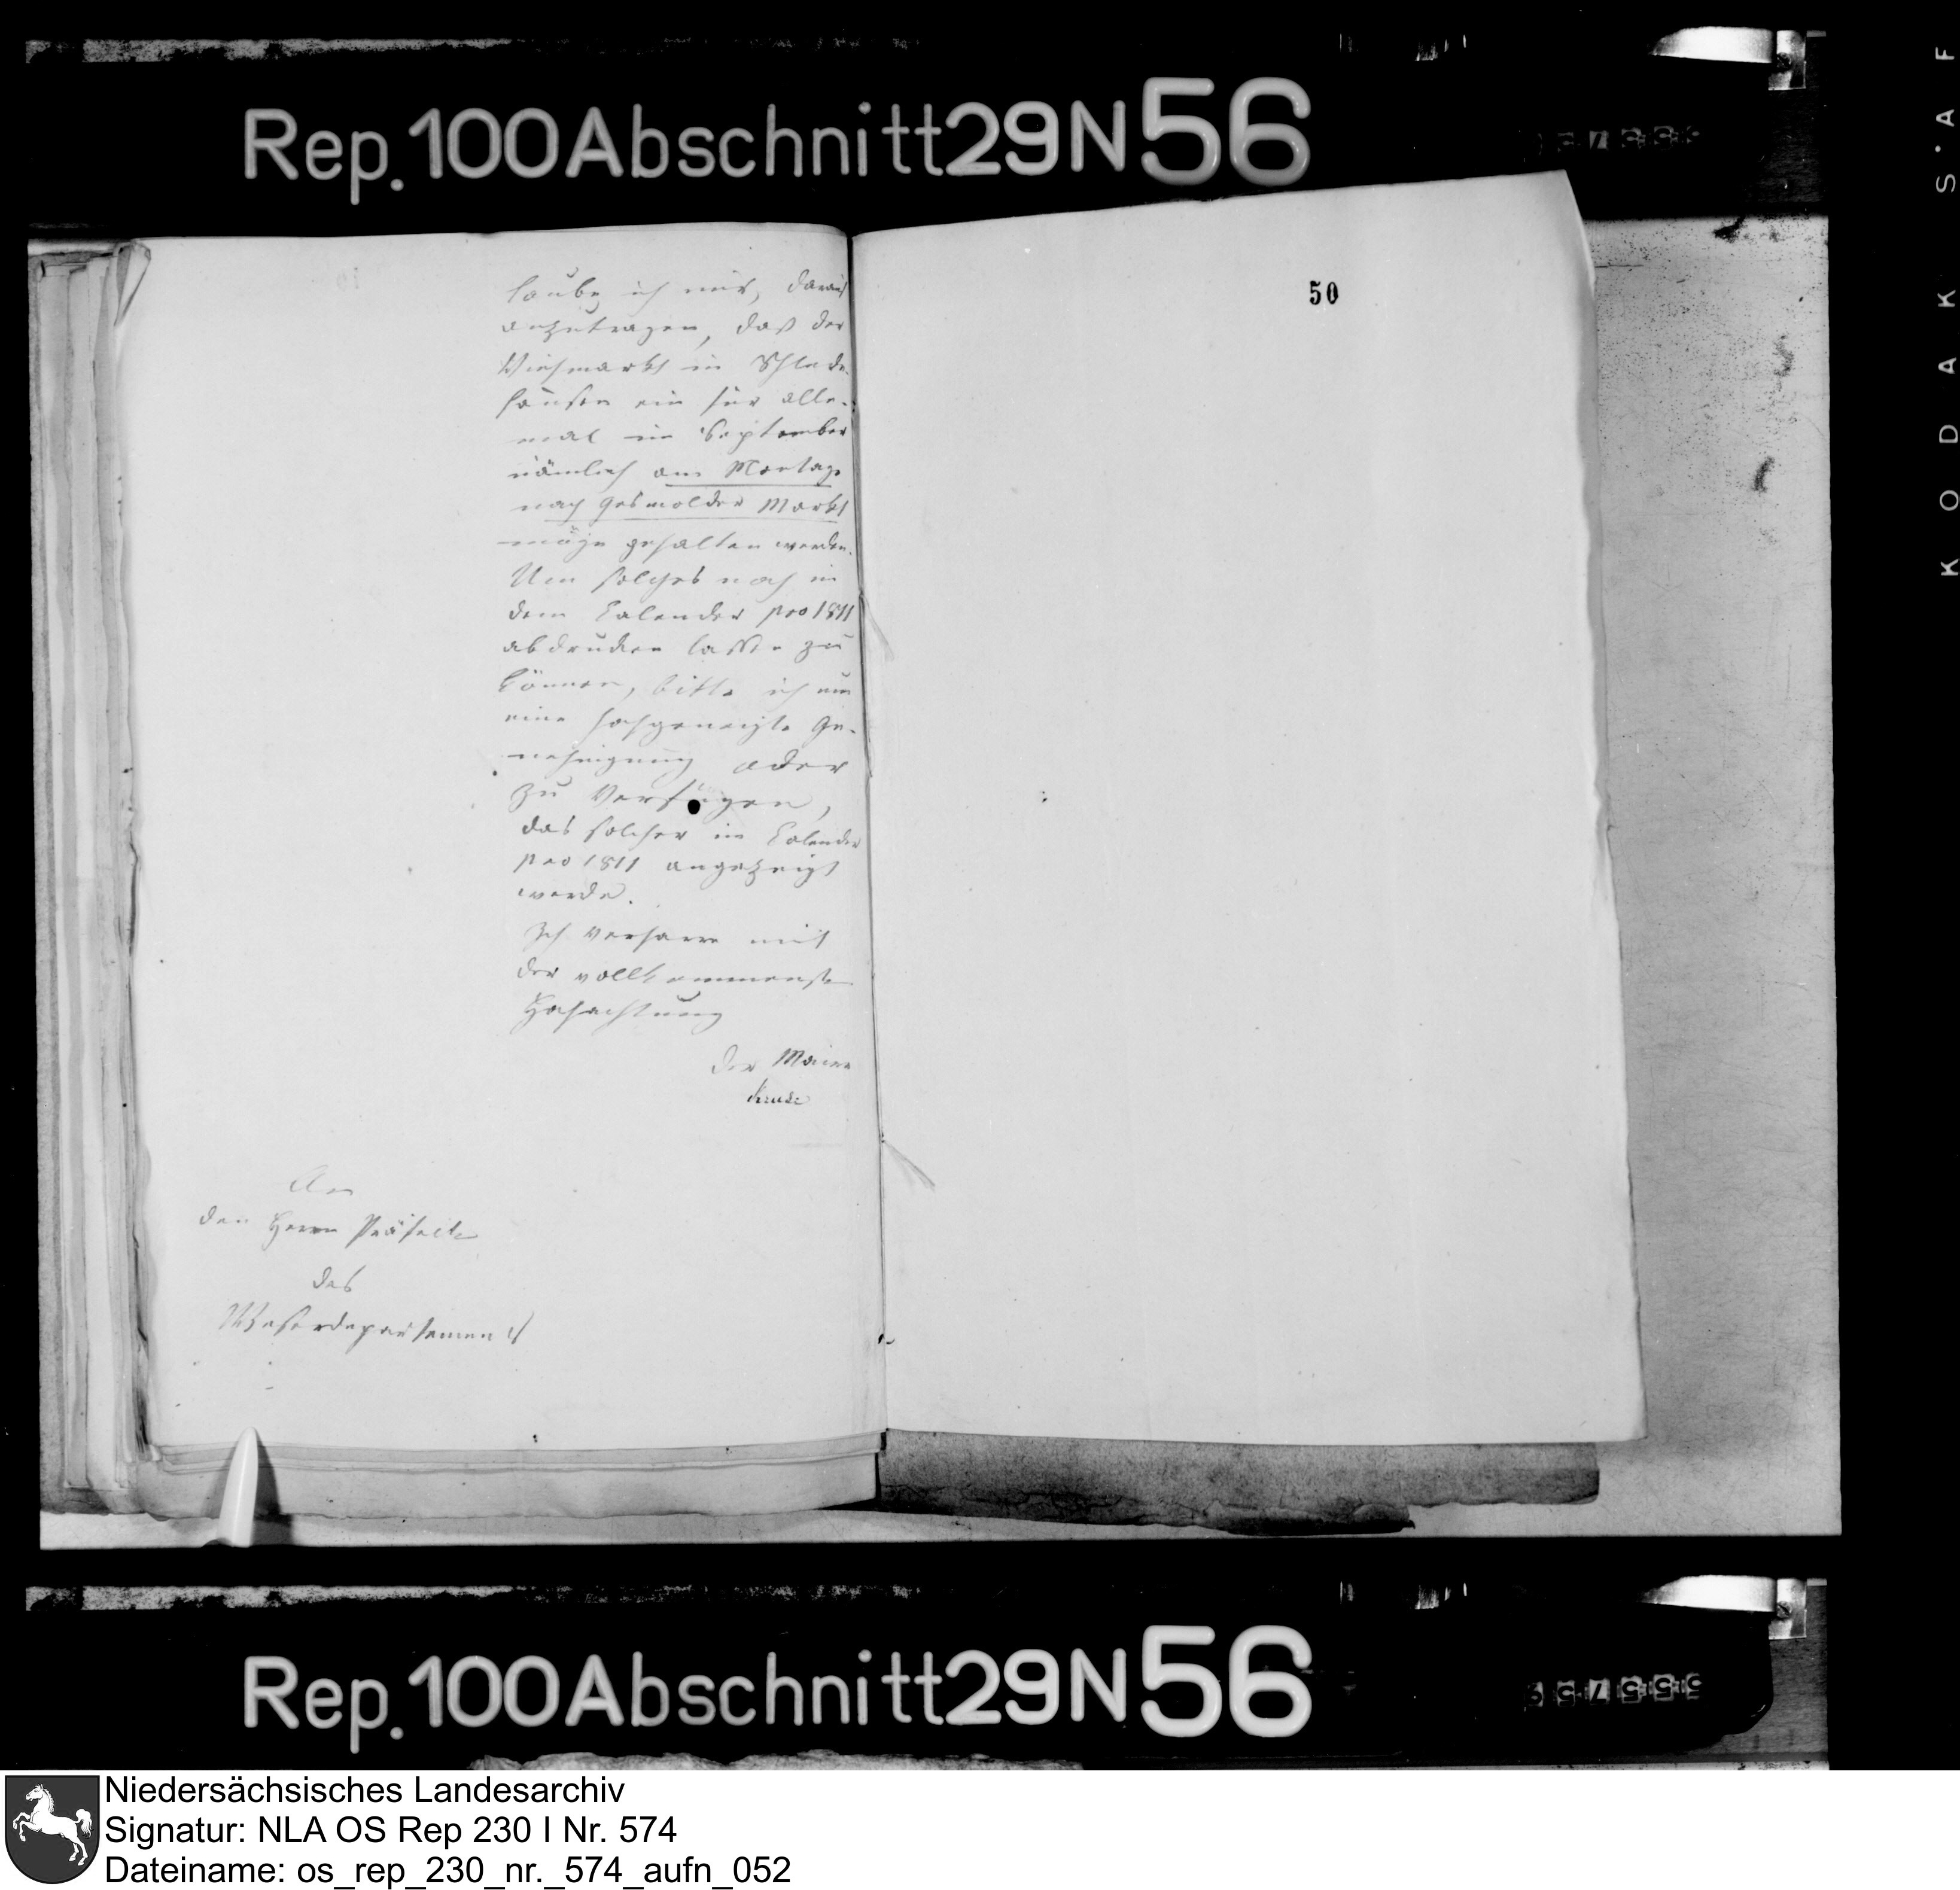 Rep. 100 Abschnitt 29 N 56
laube ich mir, darauf
anzutragen, daß der
Viehmarkt in Schlede-
hausen ein für alle-
mal im September
nämlich am Montage
nach Gesmolder Markt
möge gehalten werden.
Um solches noch in
dem Calender pro 1811
abdrucken lassen zu
können, bitte ich um
eine hochgeneigte Ge-
nehmigung oder
zu verfügen,
das solcher im Calender
pro 1811 angezeigt
werde.
Ich verharre mit
der vollkommensten
Hochachtung
Der Maire
An
den Herrn Präfecte
des
Weserdepartements
50
KODAK S'AF
Rep. 100 Abschnitt 29 N 56
Niedersächsisches Landesarchiv
Signatur: NLA OS Rep 230 I Nr. 574
Dateiname: os_rep_230_nr._574_aufn_052